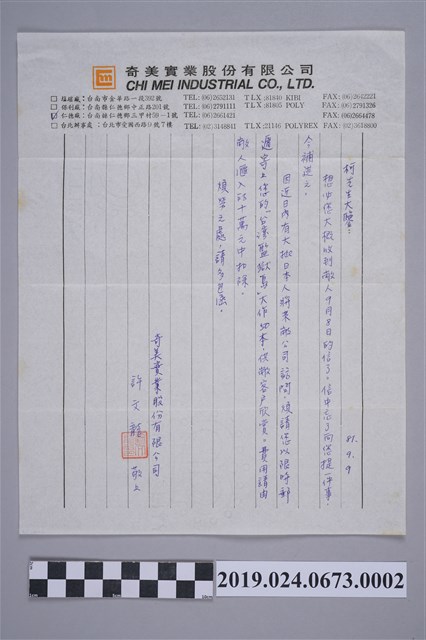 奇美實業股份有限公司
CHI MEI INDUSTRIAL CO., LTD.
台南市金華路一段392號 TEL:(06)2652131 TLX:81040 KIBI FAX:(06)2642221
保利廠:台南縣仁德鄉中正路201號 TEL:(06)2791111 TLX:81805 POLY FAX:(06)2791326
仁德廠:台南縣仁德鄉三甲村59-1號 TEL:(06)2661421 FAX:(06)2664478
台北辦事處:台北市愛國西路9號7樓 TEL:(02)3148841 TLX:21146 POLYREX FAX:(02)3618800
81.9.9
柯先生大鑒:
想必您大概收到敝人9月8日的信了,信中忘了向您提一件事,
今補述之。
因近日內有大批日本人將來敝公司訪問,煩請您以限時郵
遞寄上您的"台灣監獄島"大作 本,供敝客戶欣賞。費用請由
敝人匯入的十萬元中扣除。
煩勞之處,請多包涵。
奇美實業股份有限公司
許文龍 敬上
2019.024.0673.0002